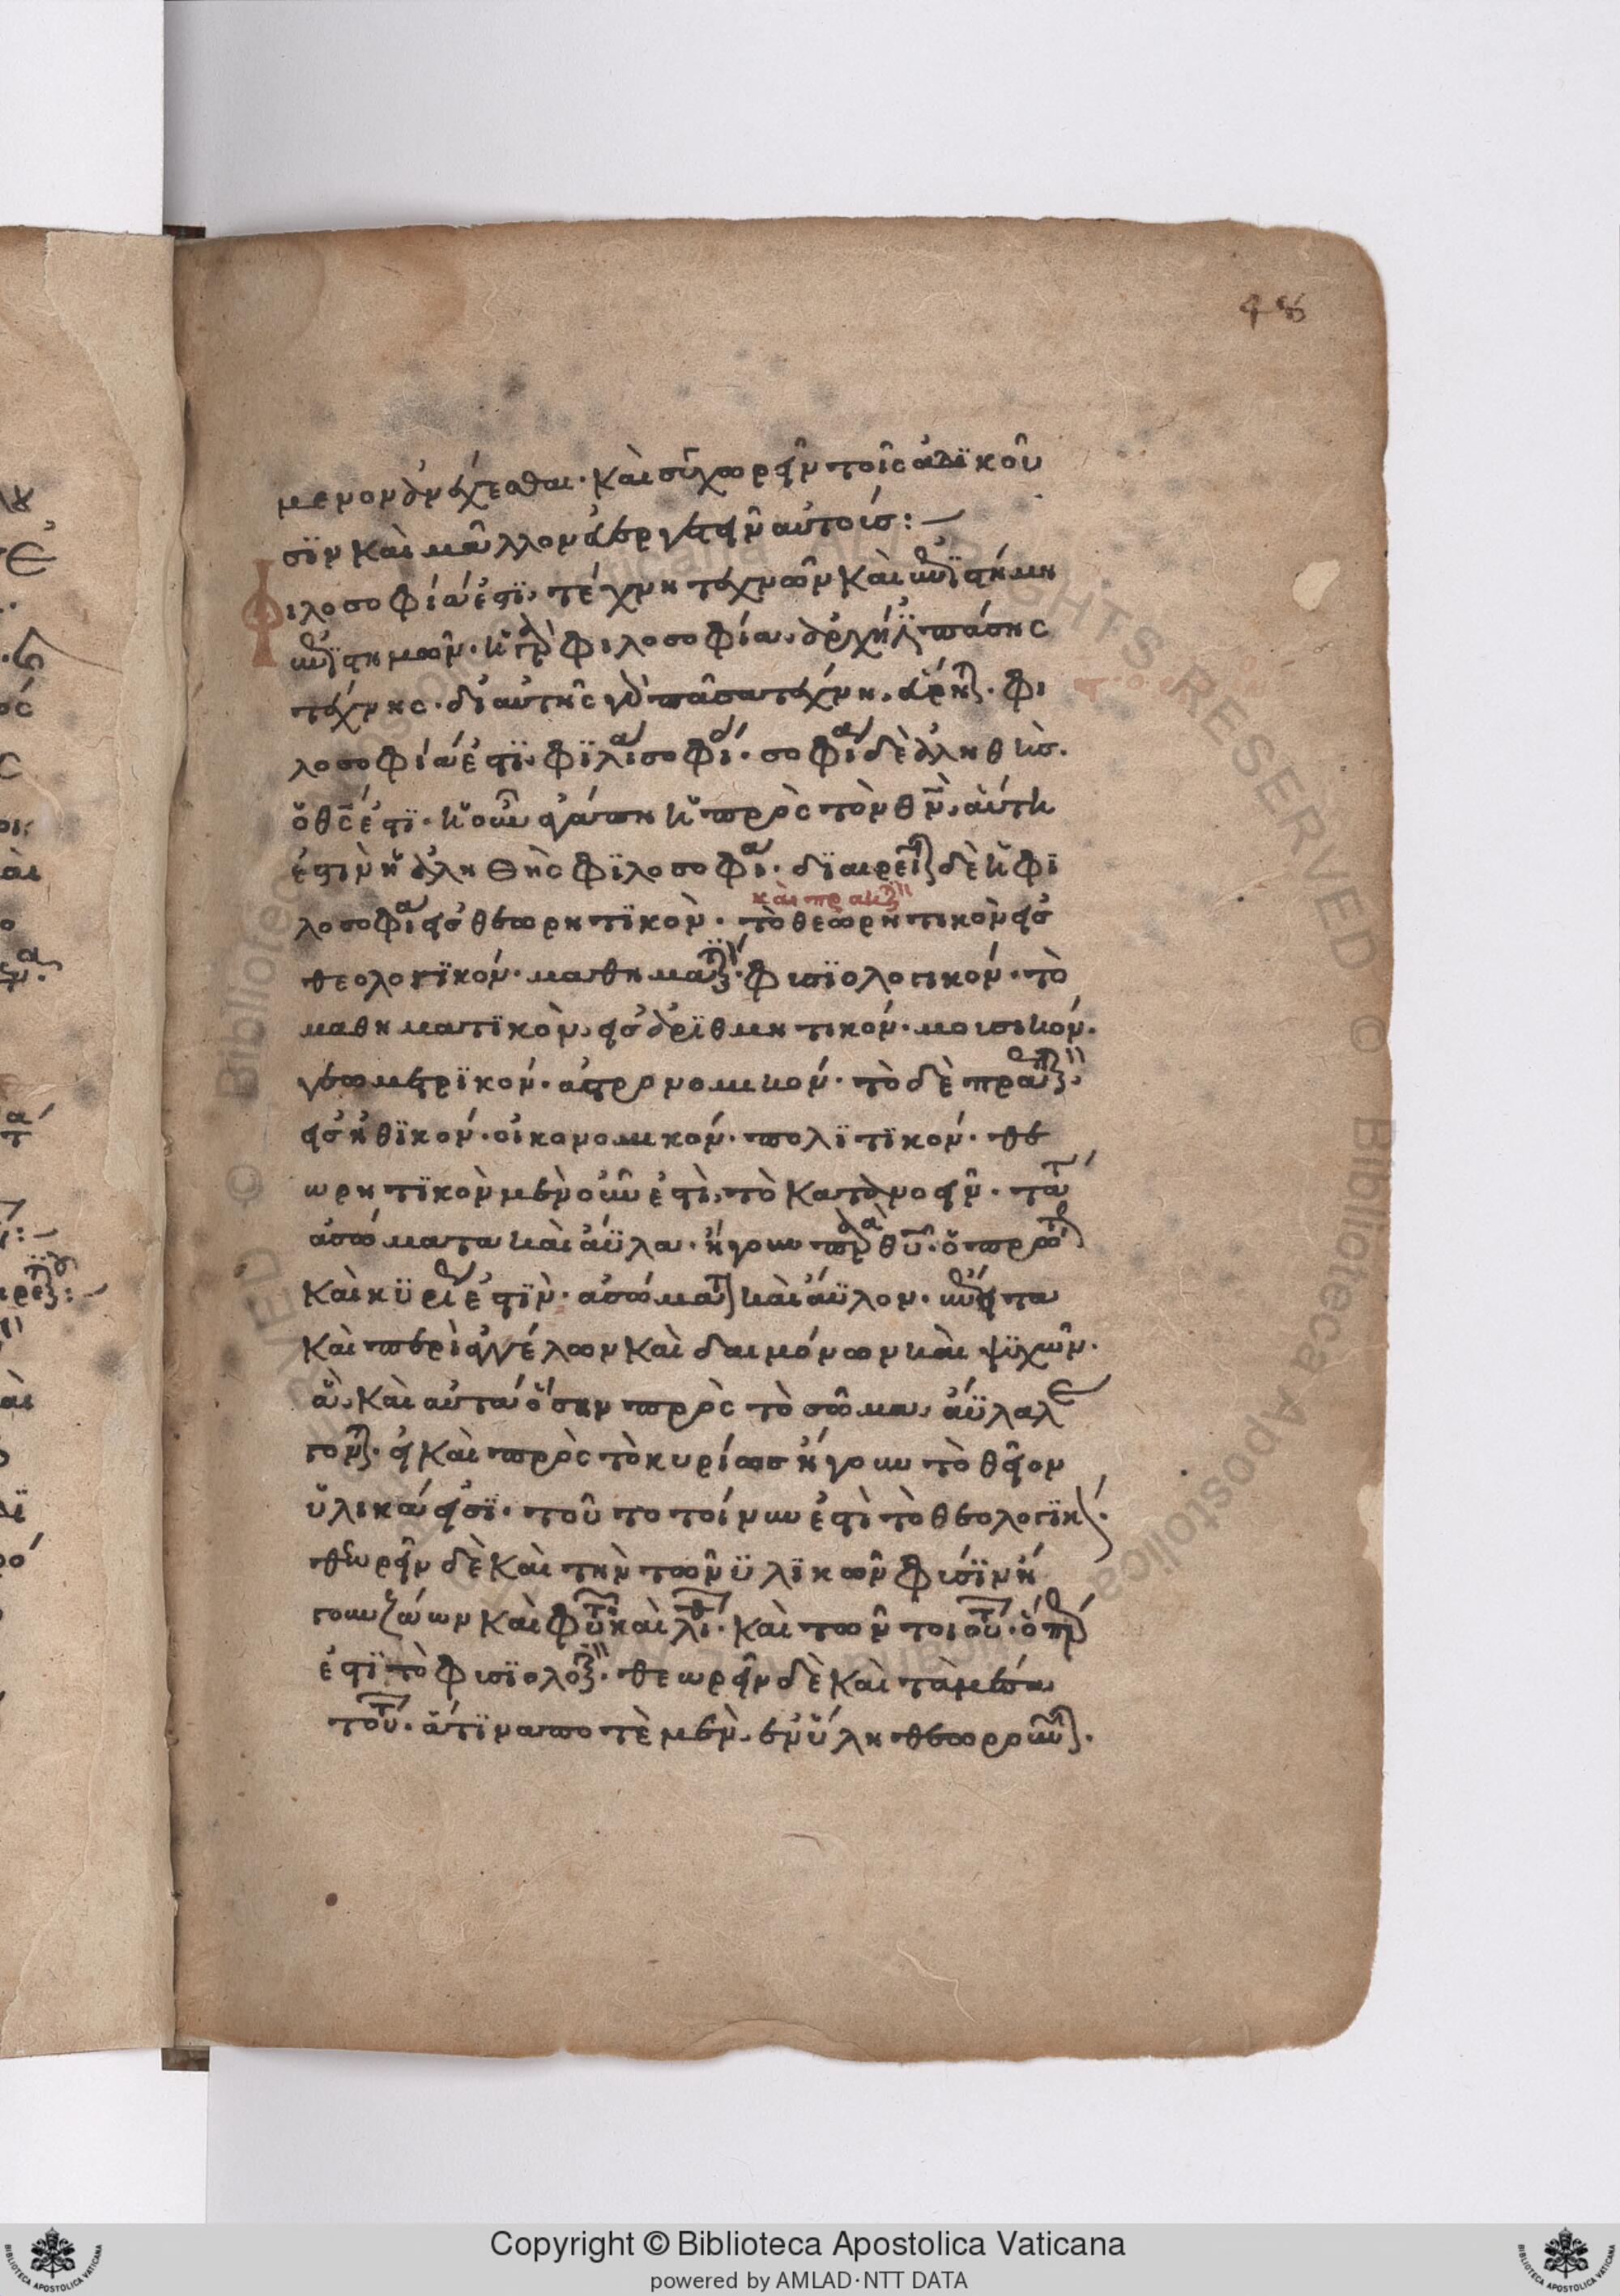 48
μενον ἀνέχεσθαι· καὶ συγχωρεῖν τοῖς ἀδϊκοῦ
σϊν καὶ μᾶλλον εὐεργετεῖν αὐτοῖσ:—
Φιλοσοφία ἐστϊ, τέχνη τεχνῶν καὶ ἐπϊστήμη
ἐπϊστημῶν· ἡ γὰρ φιλοσοφία, ἀρχή ἐστϊ πάσης
τέχνης· δι αὐτῆς γὰρ πᾶσα τέχνη, εὕρηται· φι
λοσοφία ἐστϊ, φϊλία σοφίας· σοφία δὲ ἀληθὴσ.
ὁ θς ἐστϊ· ἡ οὖν ἀγάπη ἡ πρὸς τὸν θν, αὕτη
ἐστὶν ἡ ἀληθὴς φϊλοσοφία· δϊαιρεῖται δὲ ἡ φϊ
λοσοφία εἰσ θεωρητϊκὸν· τὸ θεωρητικὸν εἰσ
καὶ πρακτικόν
θεολογϊκόν· μαθηματικόν· φυσϊολογικόν· τὸ
μαθηματϊκὸν, εἰσ ἀρϊθμητικόν· μουσικόν.
γεωμετρϊκόν· αστρονομικόν· τὸ δὲ πρακτικόν,
εἰσ ἠθϊκόν· οἰκονομικόν· πολϊτϊκόν· θε
ωρητϊκὸν μὲν οὖν ἐστὶ, τὸ κατανοεῖν· τὰ
ἀσώματα καὶ ἄϋλα· ἤγουν τὰ περὶ θυ· ὃ πρώτως
καὶ κϋρίως ἐστϊν· ἀσώματον καὶ ἄϋλον· ἔπειτα
καὶ περὶ ἀγγέλων καὶ δαιμόνων καὶ ψϋχῶν·
ἃ, καὶ αὐτὰ ὅσον πρὸς τὸ σῶμα, ἄϋλα λέ
γονται· εἰ καὶ πρὸς τὸ κυρίωσ ἤγουν τὸ θεῖον
ὑλικά εἰσϊ· τοῦτο τοίνυν ἐστὶ τὸ θεολογϊκόν·
θεωρεῖν δὲ καὶ τὴν τῶν ϋλϊκῶν φύσϊν ἤ
γουν ζώων καὶ φυτῶν καὶ λίθων· καὶ τῶν τοιούτων· ὅπερ
ἐστϊ τὸ φυσϊολογικόν· θεωρεῖν δὲ καὶ τὰ μέσα
τούτων· ἅτϊνα ποτὲ μὲν, ἐν ὕλη θεωροῦνται.
Copyright © Biblioteca Apostolica Vaticana
powered by AMLAD·NTT DATA